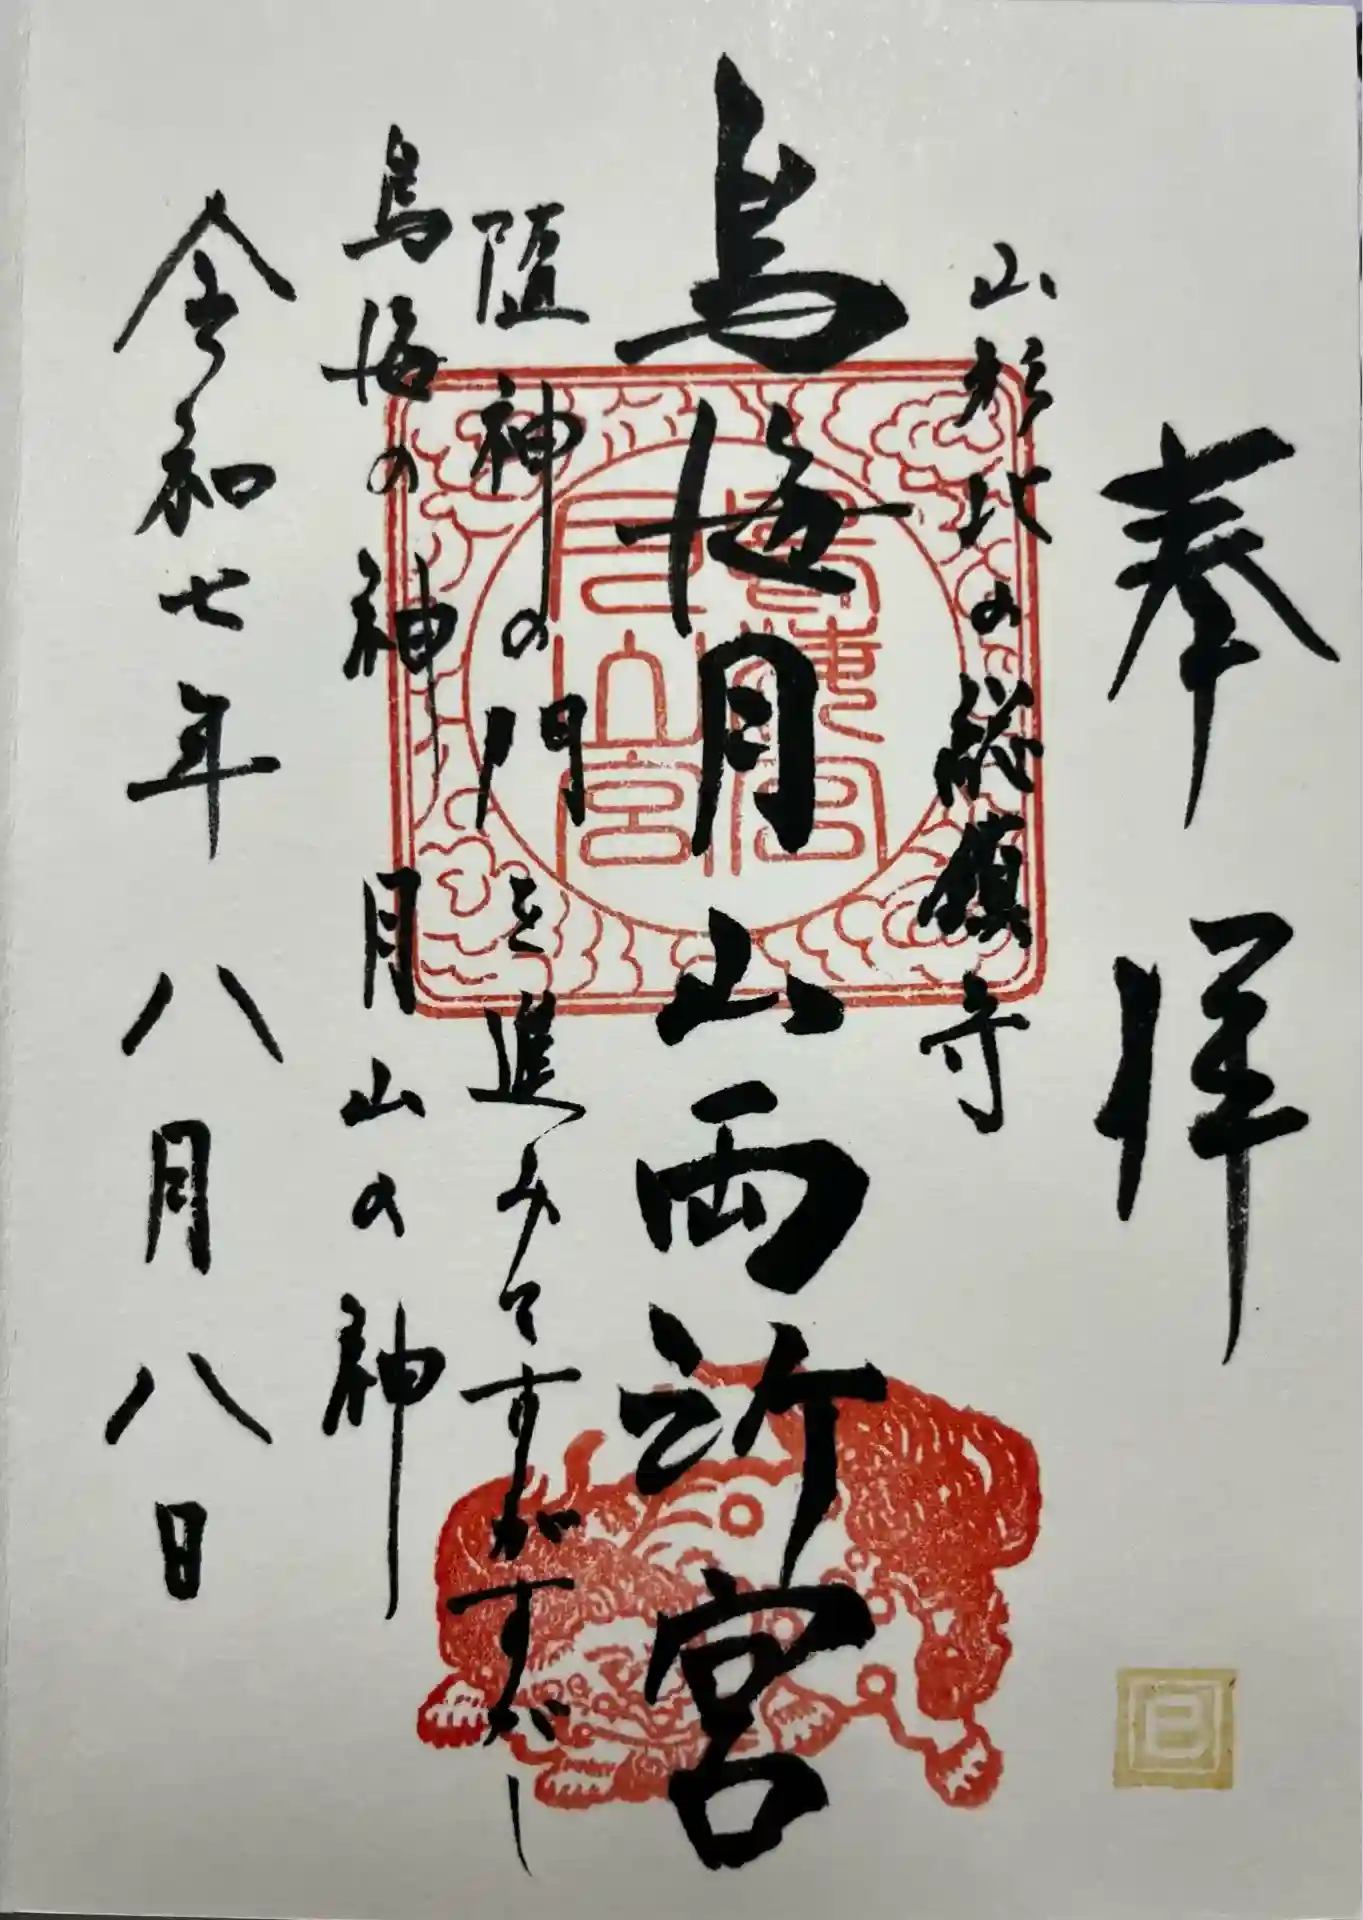 奉拝
山形北の総鎮守
鳥海月山両所宮
随神の門を進みてすがすがし
鳥海の神月山の神
令和七年八月八日
巳